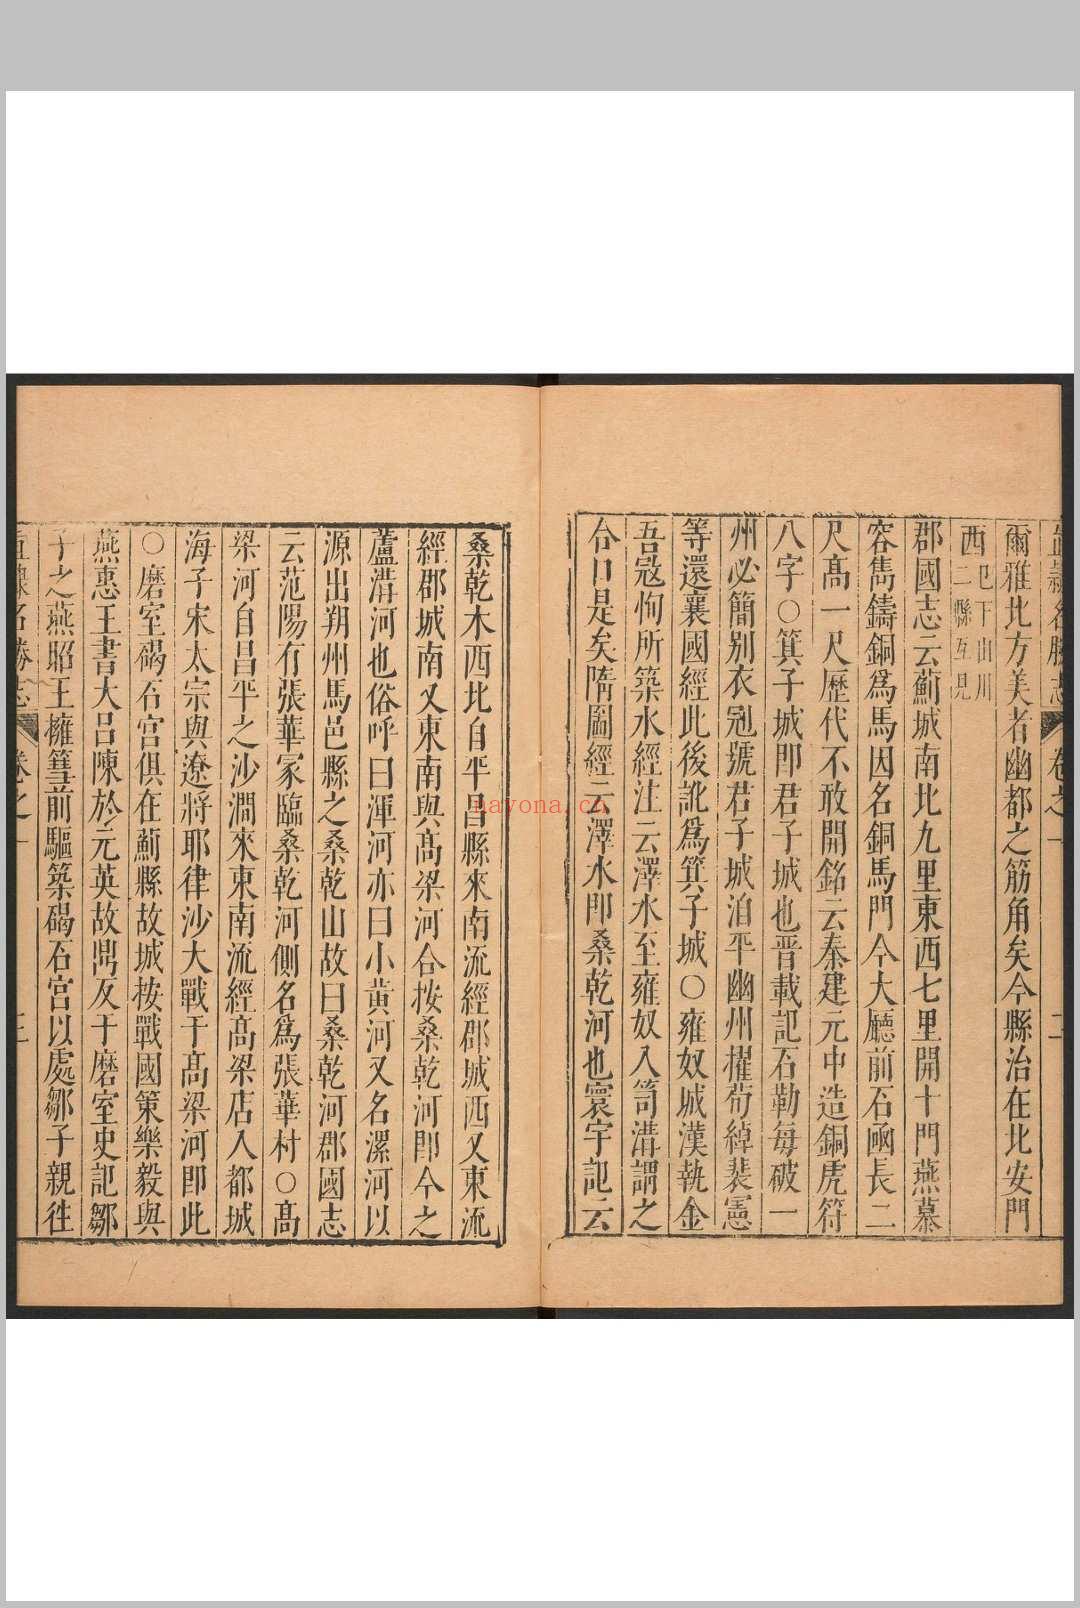 爾雅北方美者幽都之筋角矣今縣治在北安門
西已下山川
二縣互見
郡國志云薊城南北九里東西七里開十門燕慕
容雋鑄銅爲馬因名銅馬門今大廳前石凾長二
尺髙一尺歷代不敢開銘云秦建元中造銅虎符
八字○箕子城即君子城也晋載記石勒每破一
州必簡别衣冠號君子城洎平幽州擢荀綽裴憲
等還襄國經此後訛爲箕子城○雍奴城漢執金
吾冦恂所築水經注云澤水至雍奴入笥溝謂之
合口是矣隋圖經云澤水即桑乾河也寰宇記云
桑乾木西北自平昌縣來南流經郡城西又東流
經郡城南又東南與髙梁河合按桑乾河卽今之
蘆溝河也俗呼曰渾河亦曰小黃河又名漯河以
源出朔州馬邑縣之桑乾山故曰桑乾河郡國志
云范陽有張華冢臨桑乾河側名爲張華村○髙
梁河自昌平之沙澗來東南流經髙梁店入都城
海子宋太宗與遼將耶律沙大戰于髙梁河卽此
○磨室碣石宫俱在薊縣故城按戰國策樂毅與
燕惠王書大吕陳於元英故鼎反于磨室史記鄒
子之燕昭王擁篲前驅築碣石宫以處鄒子親徃
直隷名勝志
卷之一
二
nayona.cn